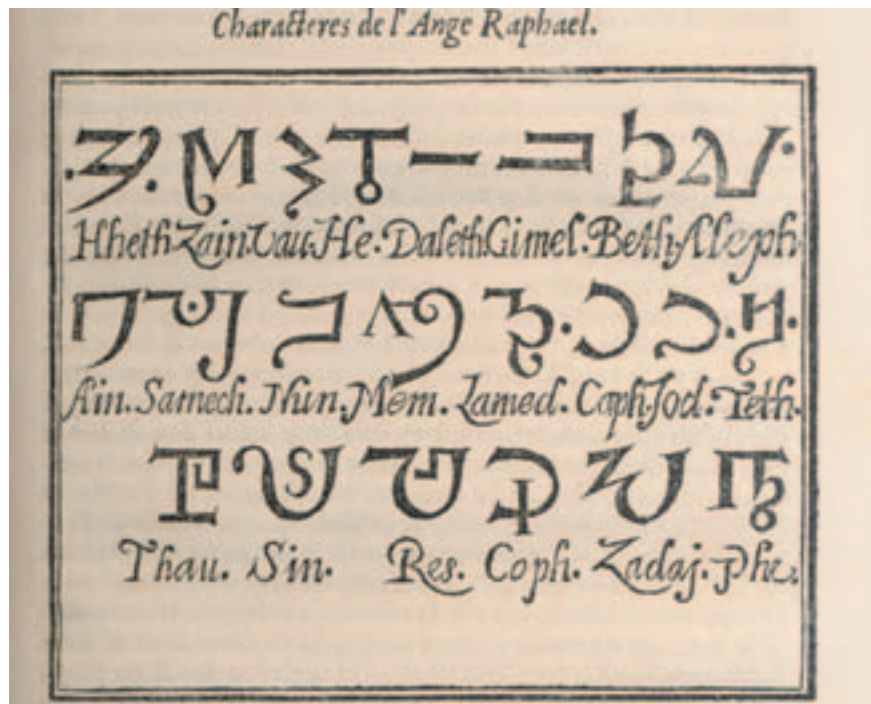 Characteres de l'Ange Raphael.
Hheth. Zain. Vau. He. Daleth. Gimel. Beth. Aleph.
Ain. Samech. Nun. Mem. Lamed. Caph. Jod. Teth.
Thau. Sin. Res. Coph. Zadaj. Phe.